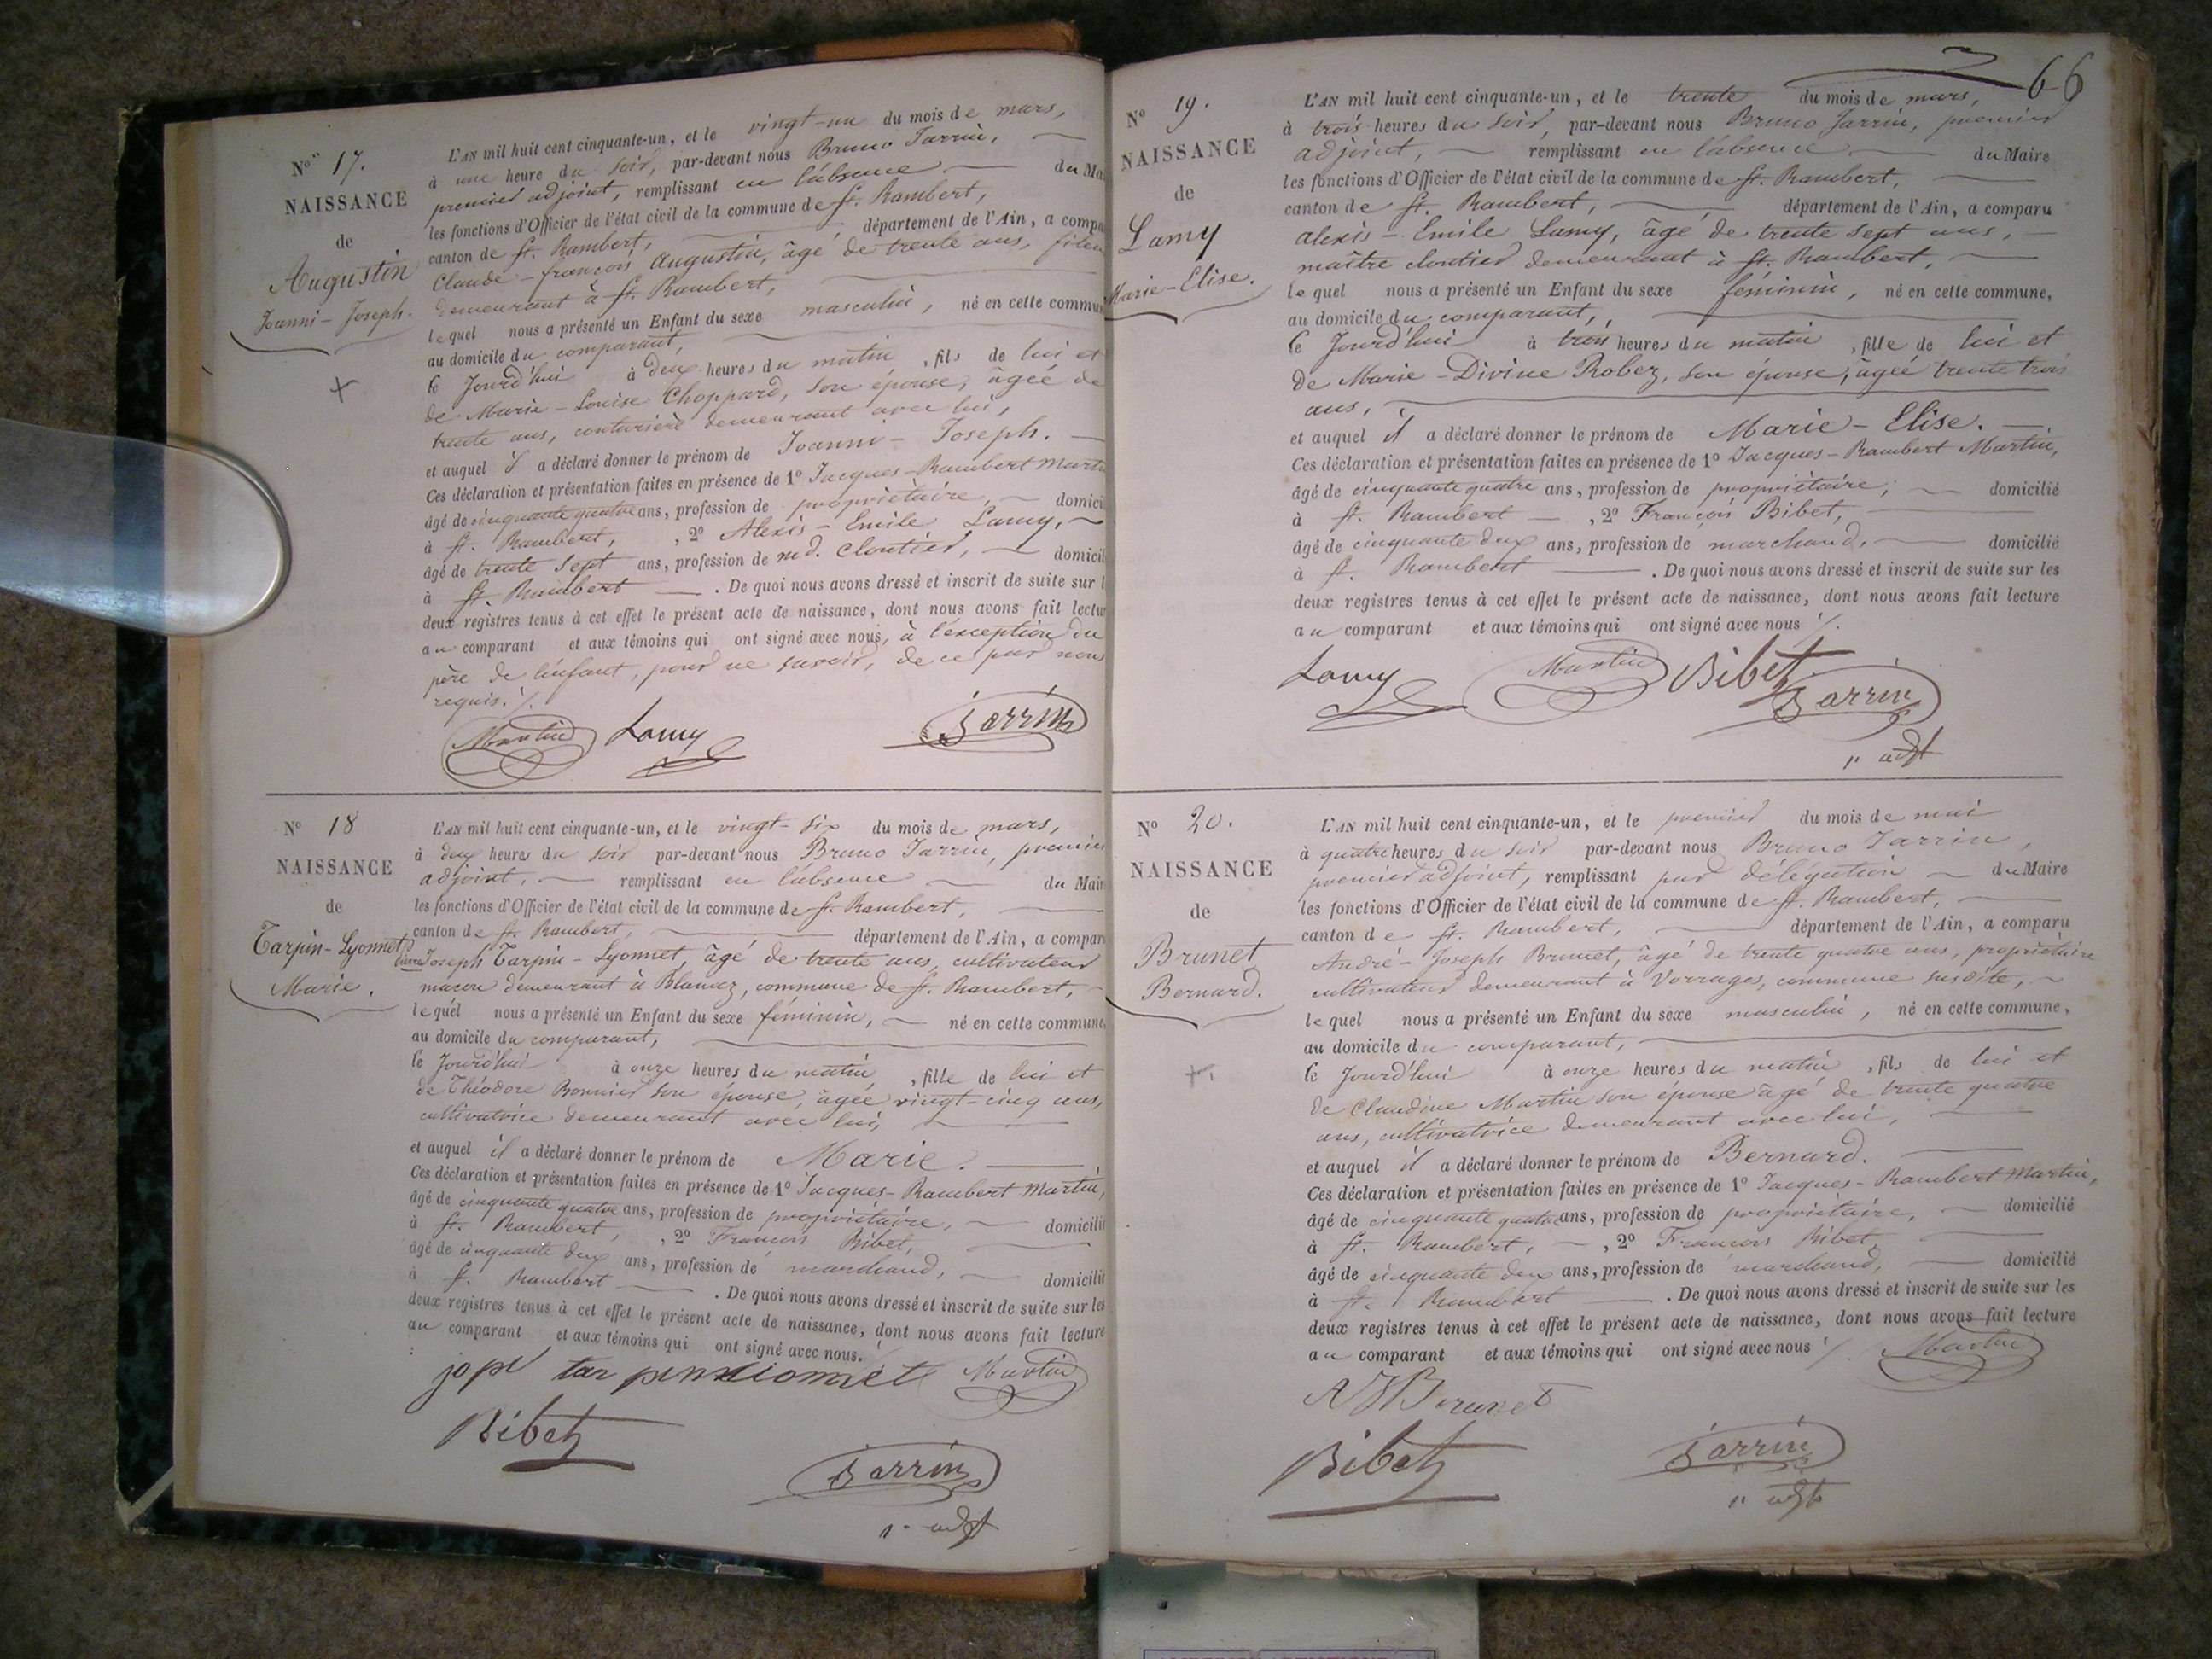 No 17.
NAISSANCE
de
Augustin
Joanni-Joseph.
L'AN mil huit cent cinquante-un, et le vingt-un du mois de mars,
à une heure du soir, par-devant nous Bruno Jarrin,
premier adjoint, remplissant en l'absence du Ma
les fonctions d'Officier de l'état civil de la commune de St. Rambert,
canton de St. Rambert, département de l'Ain, a compa
Claude-françois Augustin, âgé de trente ans,
demeurant à St. Rambert,
lequel nous a présenté un Enfant du sexe masculin, né en cette commun
au domicile du comparant,
le Jourd'hui à deux heures du matin, fils de lui et
de Marie-Louise Choppard, son épouse, âgée de
trente ans, couturière demeurant avec lui,
et auquel il a déclaré donner le prénom de Joanni-Joseph.
Ces déclaration et présentation faites en présence de 1º Jacques-Rambert Martin
âgé de cinquante quatre ans, profession de propriétaire, domici
à St. Rambert, , 2º Alexis-Emile Lamy,
âgé de trente sept ans, profession de md. cloutier, domicili
à St. Rambert . De quoi nous avons dressé et inscrit de suite sur l
deux registres tenus à cet effet le présent acte de naissance, dont nous avons fait lectur
au comparant et aux témoins qui ont signé avec nous, à l'exception du
père de l'enfant, pour ne savoir, de ce par nous
requis ./.
Martin Lamy Jarrin
No 18
NAISSANCE
de
Tarpin-Lyonnet
Marie.
L'AN mil huit cent cinquante-un, et le vingt-six du mois de mars,
à deux heures du soir par-devant nous Bruno Jarrin, premier
adjoint, remplissant en l'absence du Mair
les fonctions d'Officier de l'état civil de la commune de St. Rambert,
canton de St. Rambert, département de l'Ain, a compar
Joseph Tarpin-Lyonnet, âgé de trente ans, cultivateur
maçon demeurant à Blanaz, commune de St. Rambert,
lequel nous a présenté un Enfant du sexe féminin, né en cette commune,
au domicile du comparant,
le Jourd'hui à onze heures du matin, fille de lui et
de Théodore Bonnier son épouse, âgée vingt-cinq ans,
cultivatrice demeurant avec lui,
et auquel il a déclaré donner le prénom de Marie.
Ces déclaration et présentation faites en présence de 1º Jacques-Rambert Martin,
âgé de cinquante quatre ans, profession de propriétaire, domicilié
à St. Rambert, , 2º François Bibet,
âgé de cinquante deux ans, profession de marchand, domicilié
à St. Rambert . De quoi nous avons dressé et inscrit de suite sur les
deux registres tenus à cet effet le présent acte de naissance, dont nous avons fait lecture
au comparant et aux témoins qui ont signé avec nous.
Martin
Bibet
Jarrin
1r adjt
66
No 19.
NAISSANCE
de
Lamy
Marie-Elise.
L'AN mil huit cent cinquante-un, et le trente du mois de mars,
à trois heures du soir, par-devant nous Bruno Jarrin, premier
adjoint, remplissant en l'absence du Maire
les fonctions d'Officier de l'état civil de la commune de St. Rambert,
canton de St. Rambert, département de l'Ain, a comparu
alexis-Emile Lamy, âgé de trente sept ans,
maître cloutier demeurant à St. Rambert,
lequel nous a présenté un Enfant du sexe féminin, né en cette commune,
au domicile du comparant,
le Jourd'hui à trois heures du matin, fille de lui et
de Marie-Divine Robez, son épouse, âgée trente trois
ans,
et auquel il a déclaré donner le prénom de Marie-Elise.
Ces déclaration et présentation faites en présence de 1º Jacques-Rambert Martin,
âgé de cinquante quatre ans, profession de propriétaire, domicilié
à St. Rambert , 2º François Bibet,
âgé de cinquante deux ans, profession de marchand, domicilié
à St. Rambert . De quoi nous avons dressé et inscrit de suite sur les
deux registres tenus à cet effet le présent acte de naissance, dont nous avons fait lecture
au comparant et aux témoins qui ont signé avec nous ./.
Lamy Martin Bibet
Jarrin
1r adjt
No 20.
NAISSANCE
de
Brunet
Bernard.
L'AN mil huit cent cinquante-un, et le premier du mois de mai
à quatre heures du soir par-devant nous Bruno Jarrin,
premier adjoint, remplissant par délégation du Maire
les fonctions d'Officier de l'état civil de la commune de St. Rambert,
canton de St. Rambert, département de l'Ain, a comparu
André-Joseph Brunet, âgé de trente quatre ans, propriétaire
cultivateur demeurant à Vorrages, commune susdite,
lequel nous a présenté un Enfant du sexe masculin, né en cette commune,
au domicile du comparant,
le Jourd'hui à onze heures du matin, fils de lui et
de Claudine Martin son épouse âgé de trente quatre
ans, cultivatrice demeurant avec lui,
et auquel il a déclaré donner le prénom de Bernard.
Ces déclaration et présentation faites en présence de 1º Jacques-Rambert Martin,
âgé de cinquante quatre ans, profession de propriétaire, domicilié
à St. Rambert, , 2º François Bibet,
âgé de cinquante deux ans, profession de marchand, domicilié
à St. Rambert . De quoi nous avons dressé et inscrit de suite sur les
deux registres tenus à cet effet le présent acte de naissance, dont nous avons fait lecture
au comparant et aux témoins qui ont signé avec nous ./. Martin
AJBrunet
Bibet
Jarrin
1r adjt